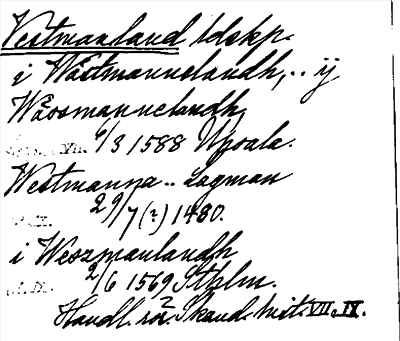 Vestmanland ldskp.
i Wästmannslandh, .. ij
Wäsmannelandh
6/3 1588 Upsala.
Westmanna .. Lagman
29/7 (?) 1480.
i Weszmanlandh
2/6 1569 Sthlm.
Handl. rör. Skand. hist. VII. IX.